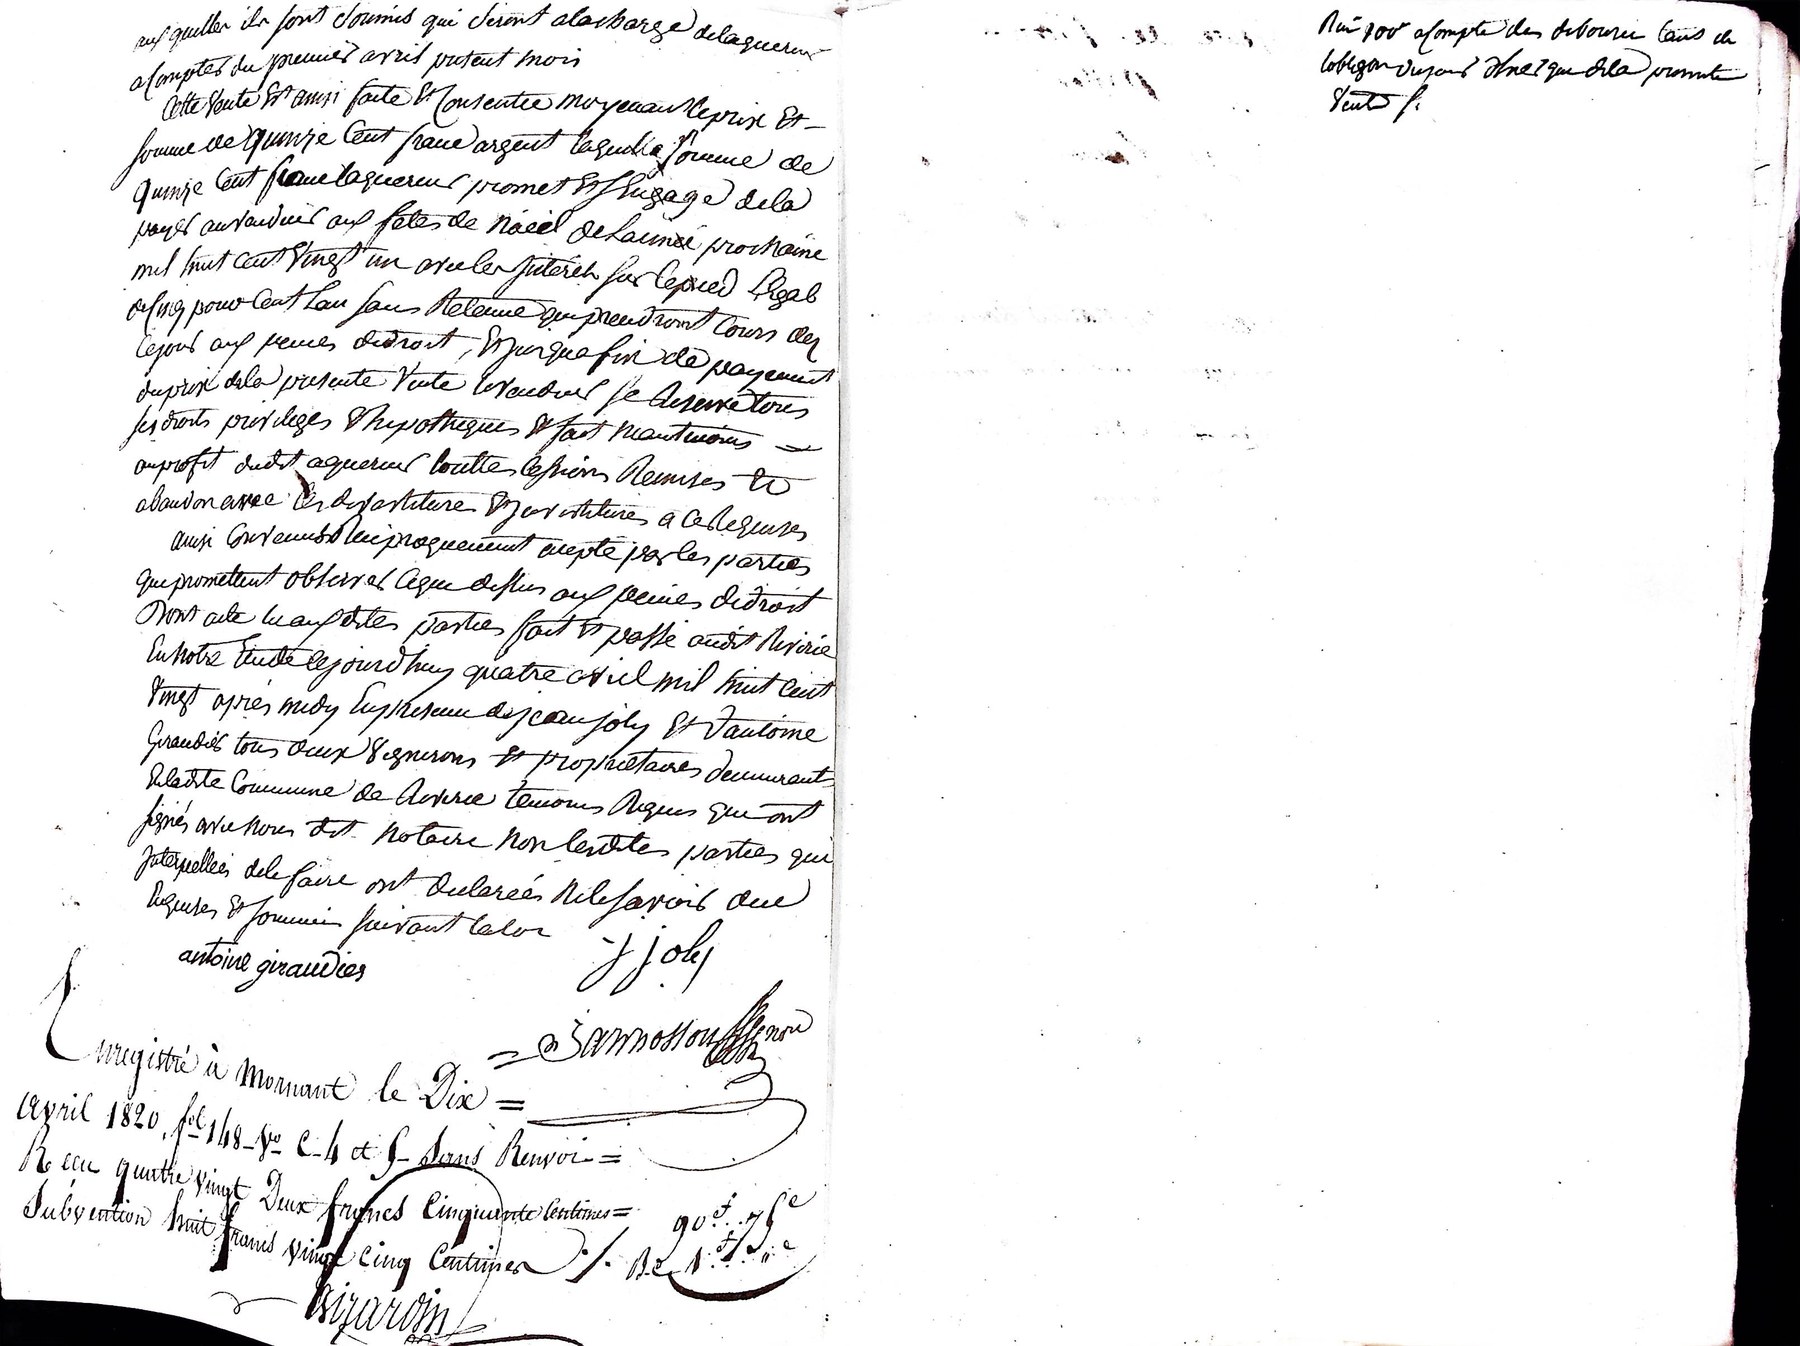 auxquelles ils sont soumis qui seront alacharge delaquereur
acompter du premier avril present mois
Cette vente Est ainsi faite Et Consentie moyenant leprix Et
somme de quinze Cent franc argent laquelle somme de
quinze Cent franc laquereur promet Et sEngage dela
payer auvendeur aux fetes de Noël delannée prochaine
mil huit cent vingt un avec les Interets sur lepied Légal
decinq pour Cent Lan sans Retenue qui prendront Cours des
Cejour aux peines dedroit, Et jusquafin de payement
duprix dela presente vente levendeur se Reserve tous
ses droits privileges Et hipotheques Et fait neantmoins =
auprofit dudit aquereur touttes cessions Remises Et
abandon avec les devestitures Et investitures a ce Requises
ainsi Convenu Et Reciproquement accepté par les parties
qui promettent observer ceque dessus aux peines dedroit
Dont acte lu auxdites parties fait Et passé audit Riverie
En Notre Etude Cejourdhuy quatre avril mil huit Cent
vingt après midy En presence de jean joly Et dantoine
Giraudier tous deux vignerons Et propriétaires demeurants
Deladite Commune de Riverie temoins Requis qui ont
signés avec Nous dit Notaire Non lesdites parties qui
Interpellées dele faire ont declarées Nele savoir dece
Requises Et sommées suivant laloi
antoine giraudier j joly
Enregistré à Mornant le Dix =
avril 1820, fol 148 Vo C. 4 et 5 Sans Renvoi =
Recu quatre vingt Deux francs Cinquante Centimes =
Subvention huit francs vingt Cinq Centimes 90 f. 75 c
1 f. " c
Girardin
acompte des
dela presente
vente